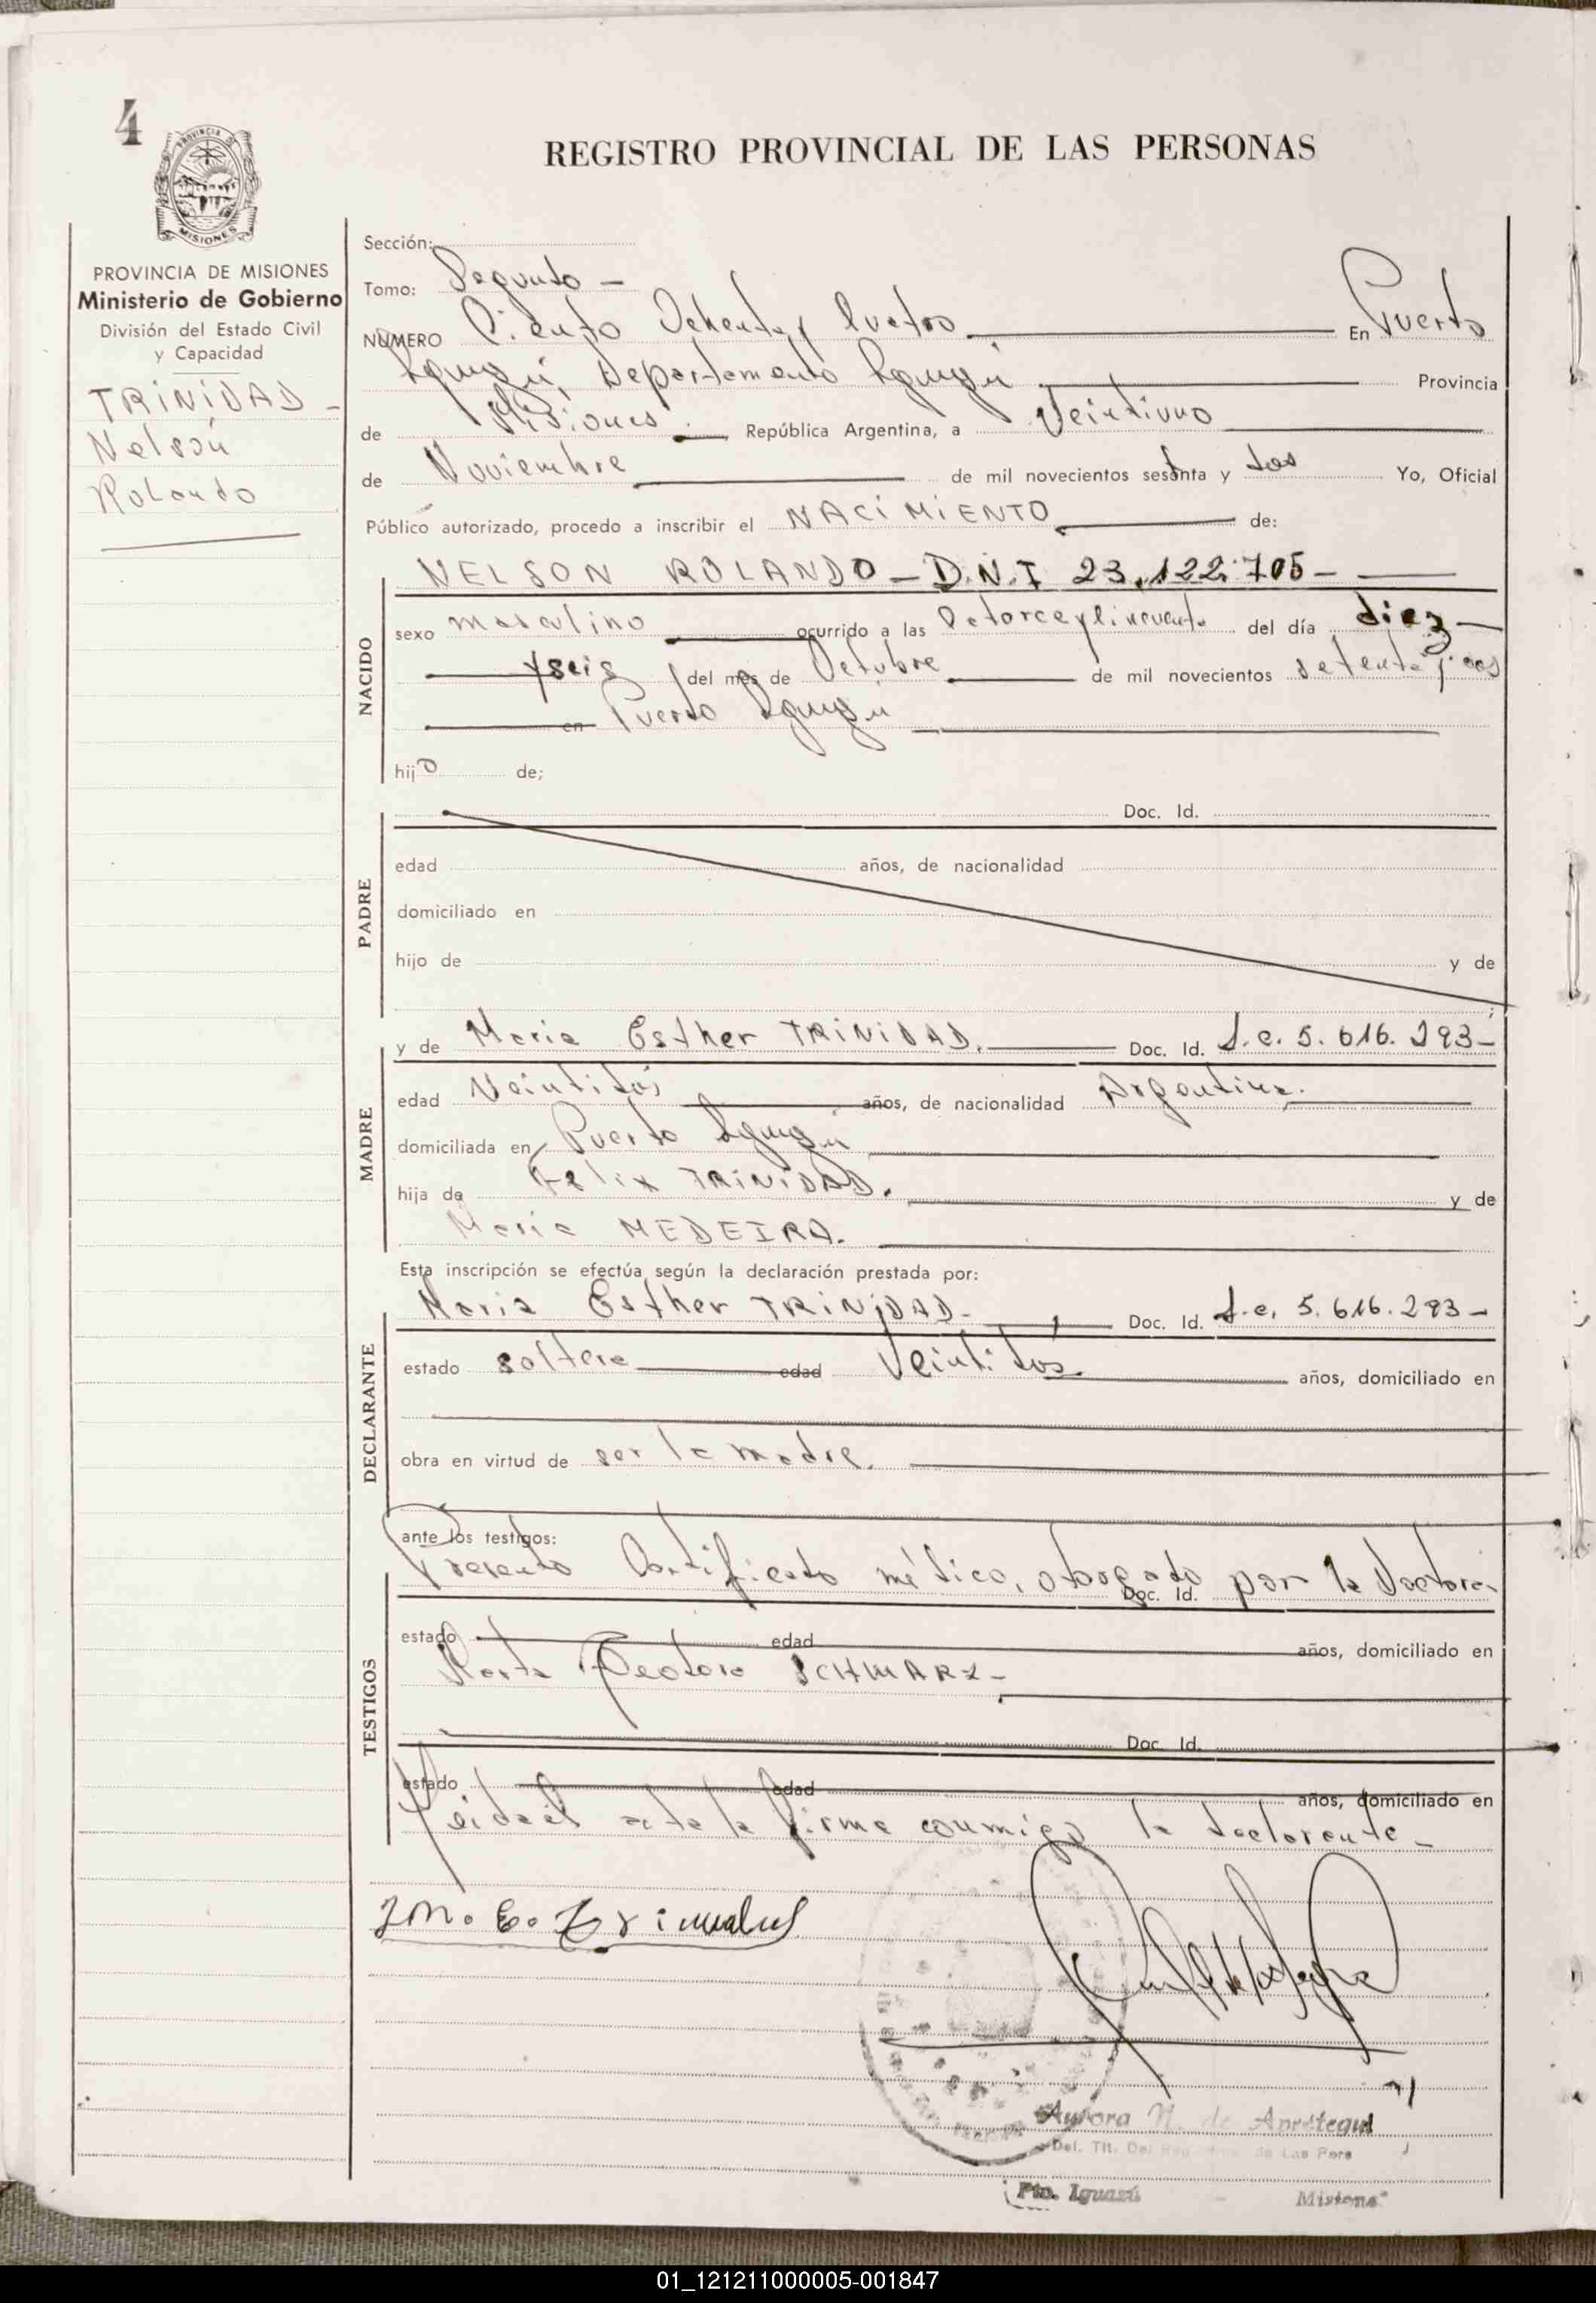 4
PROVINCIA DE MISIONES
REGISTRO PROVINCIAL DE LAS PERSONAS
PROVINCIA DE MISIONES
Ministerio de Gobierno
División del Estado Civil
y Capacidad
TRINIDAD -
Nelson
Rolando
Sección:
Tomo: Segundo -
NUMERO Ciento Ochenta y Cuatro En Puerto
Iguazú, Departamento Iguazú Provincia
de Misiones. República Argentina, a Veintiuno
de Noviembre de mil novecientos sesenta y dos Yo, Oficial
Público autorizado, procedo a inscribir el NACIMIENTO de:
NELSON ROLANDO - D.N.I 23.122.705 -
NACIDO
sexo masculino ocurrido a las Catorce y Cincuenta del día diez
y seis del mes de Octubre de mil novecientos setenta y dos
en Puerto Iguazú
hijo de;
PADRE
Doc. Id.
edad años, de nacionalidad
domiciliado en
hijo de y de
MADRE
y de Maria Esther TRINIDAD. Doc. Id. L.c. 5.616.293 -
edad Veintidós años, de nacionalidad Argentina.
domiciliada en Puerto Iguazú
hija de Felix TRINIDAD. y de
Maria MEDEIRA.
Esta inscripción se efectúa según la declaración prestada por:
DECLARANTE
Maria Esther TRINIDAD - Doc. Id. L.c. 5.616.293 -
estado soltera edad Veintidós años, domiciliado en
obra en virtud de ser la madre.
ante los testigos:
TESTIGOS
Presento Certificado médico, otorgado por la doctora
Doc. Id.
estado edad años, domiciliado en
Teodora SCHWARZ -
Doc. Id.
estado edad años, domiciliado en
Leida el acta la firma conmigo la declarante -
M. E. Trinidad
Aurora N. de Aprétegui
Del. Tit. Del de Las Pers
Pto. Iguazú - Misiones
01_121211000005-001847